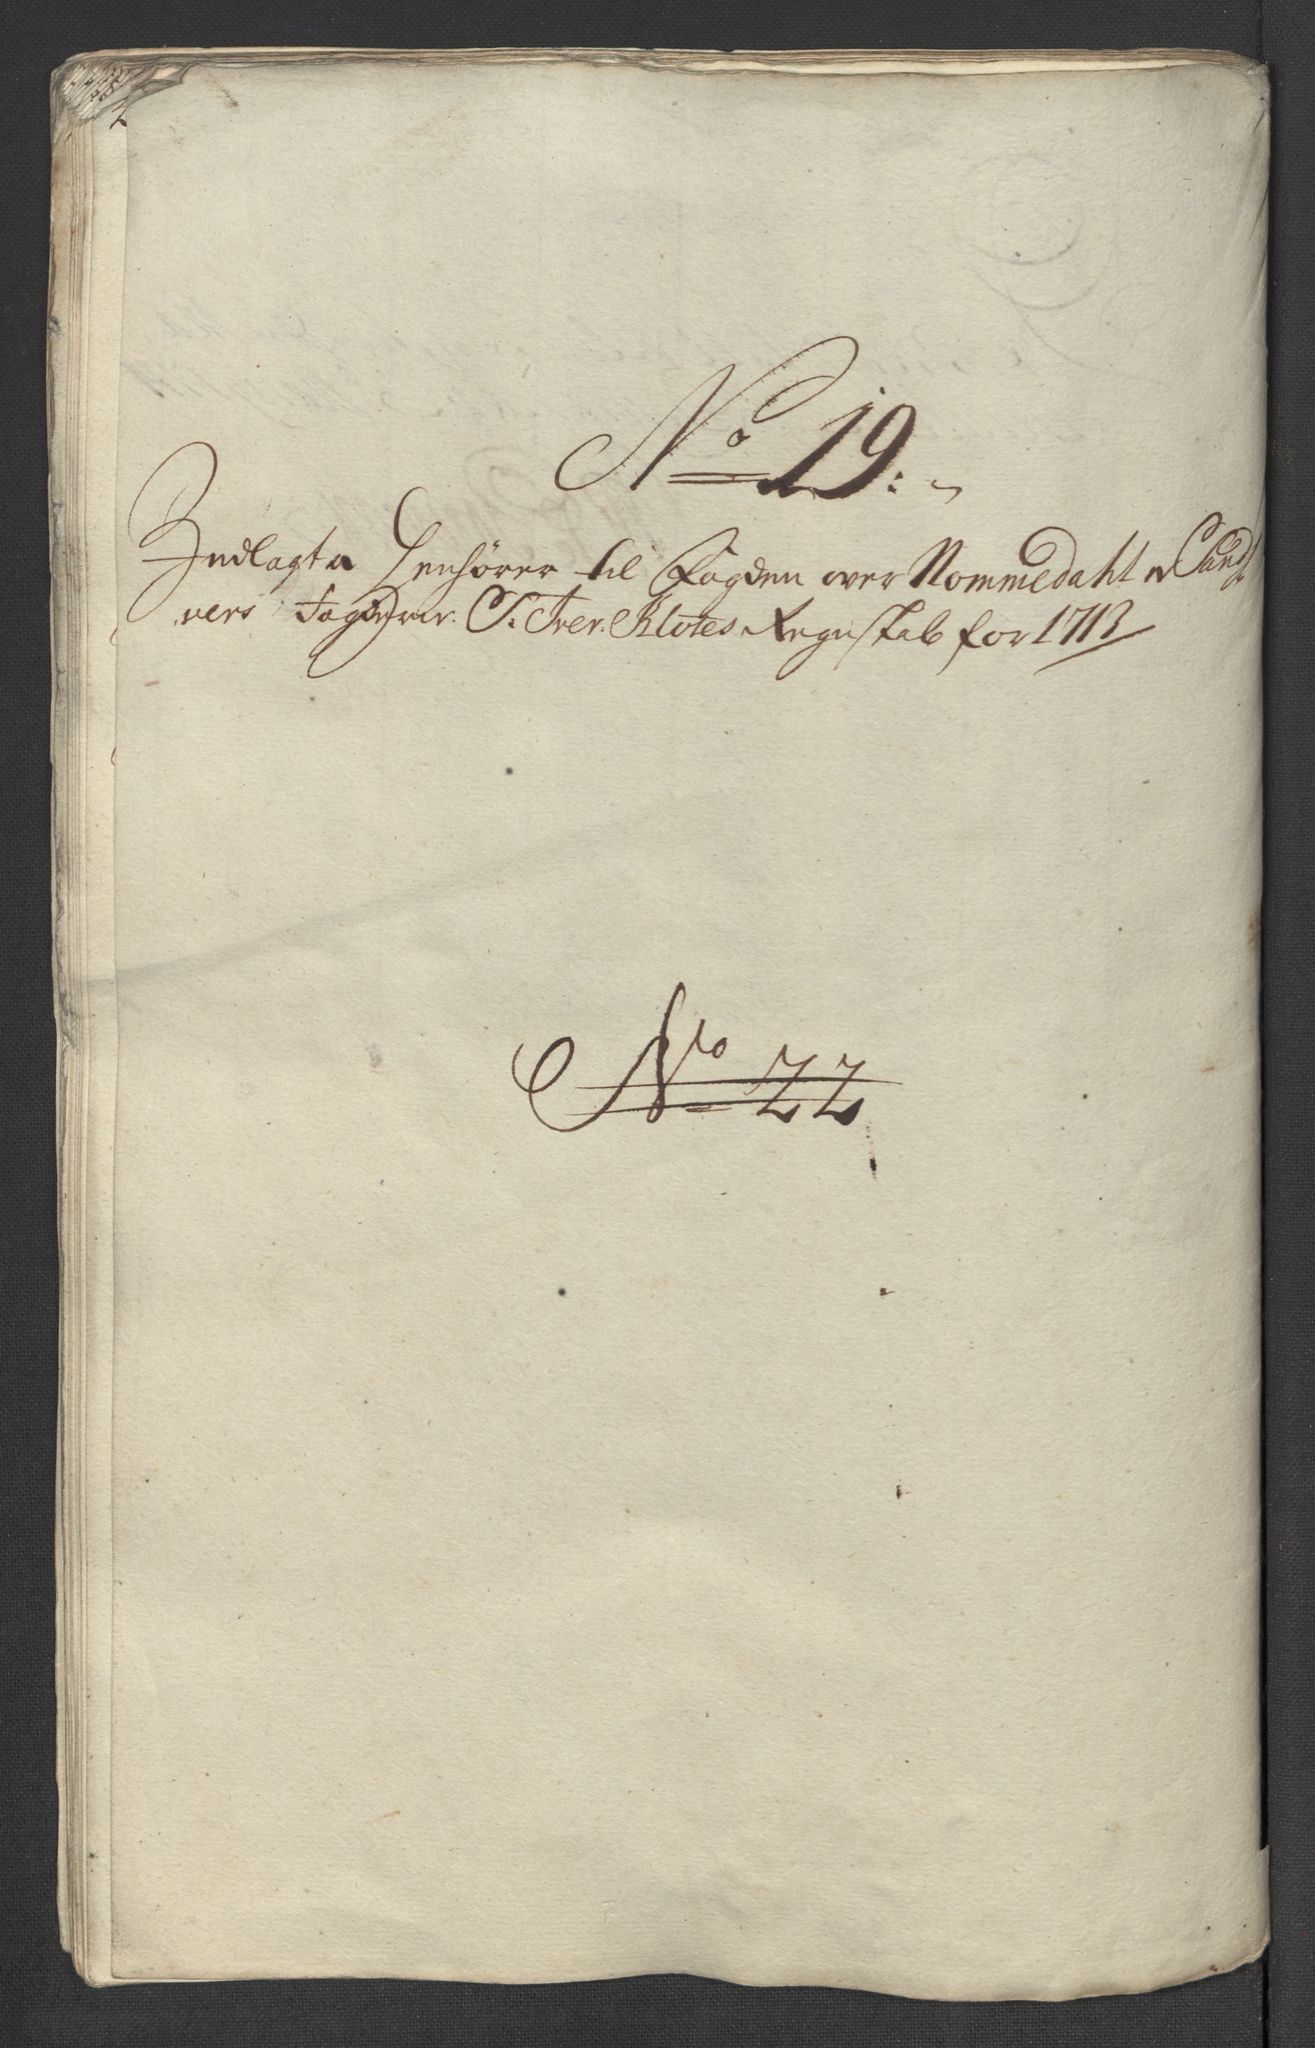 No 19:
Indlagte henhører til Fogden over Nommedahl
vers Fogderie S. Iver Klotes Regnskab for 1713
No 22